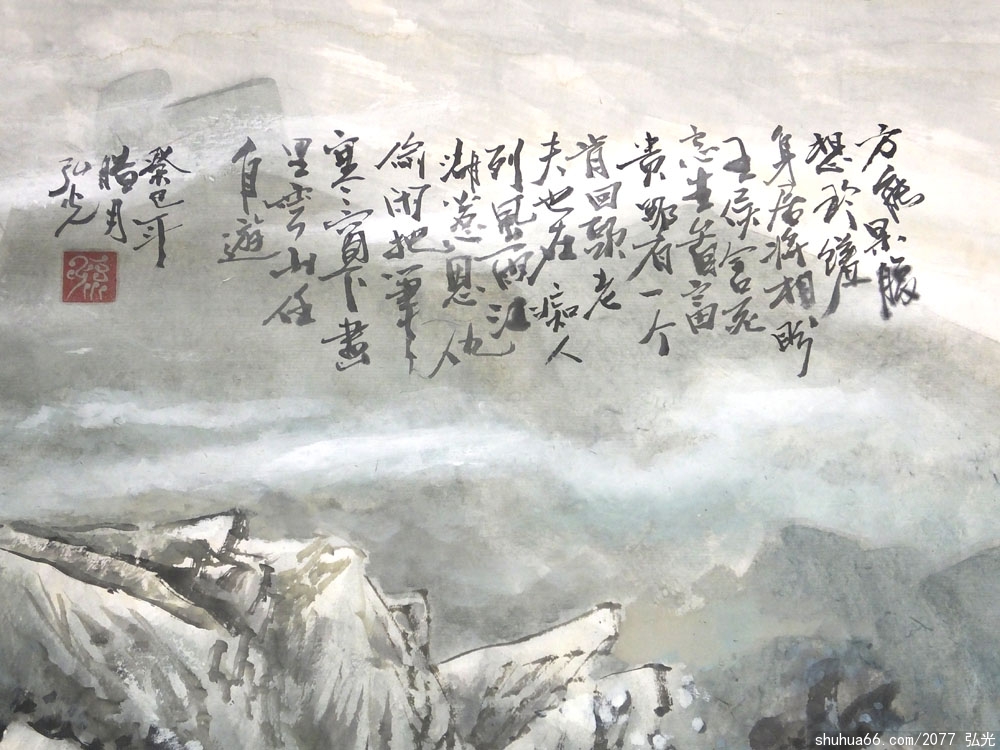 方能果腹
想珍饈
身居將相盼
王侯舍死
忘生富
貴哪有一个
肯回頭老
夫也在痴人
列風雨江
湖恩仇
偷闲把筆
寒窗下畫
里雲山任
自遊
癸巳年
腊月
弘光
shuhua66.com/2077 弘光